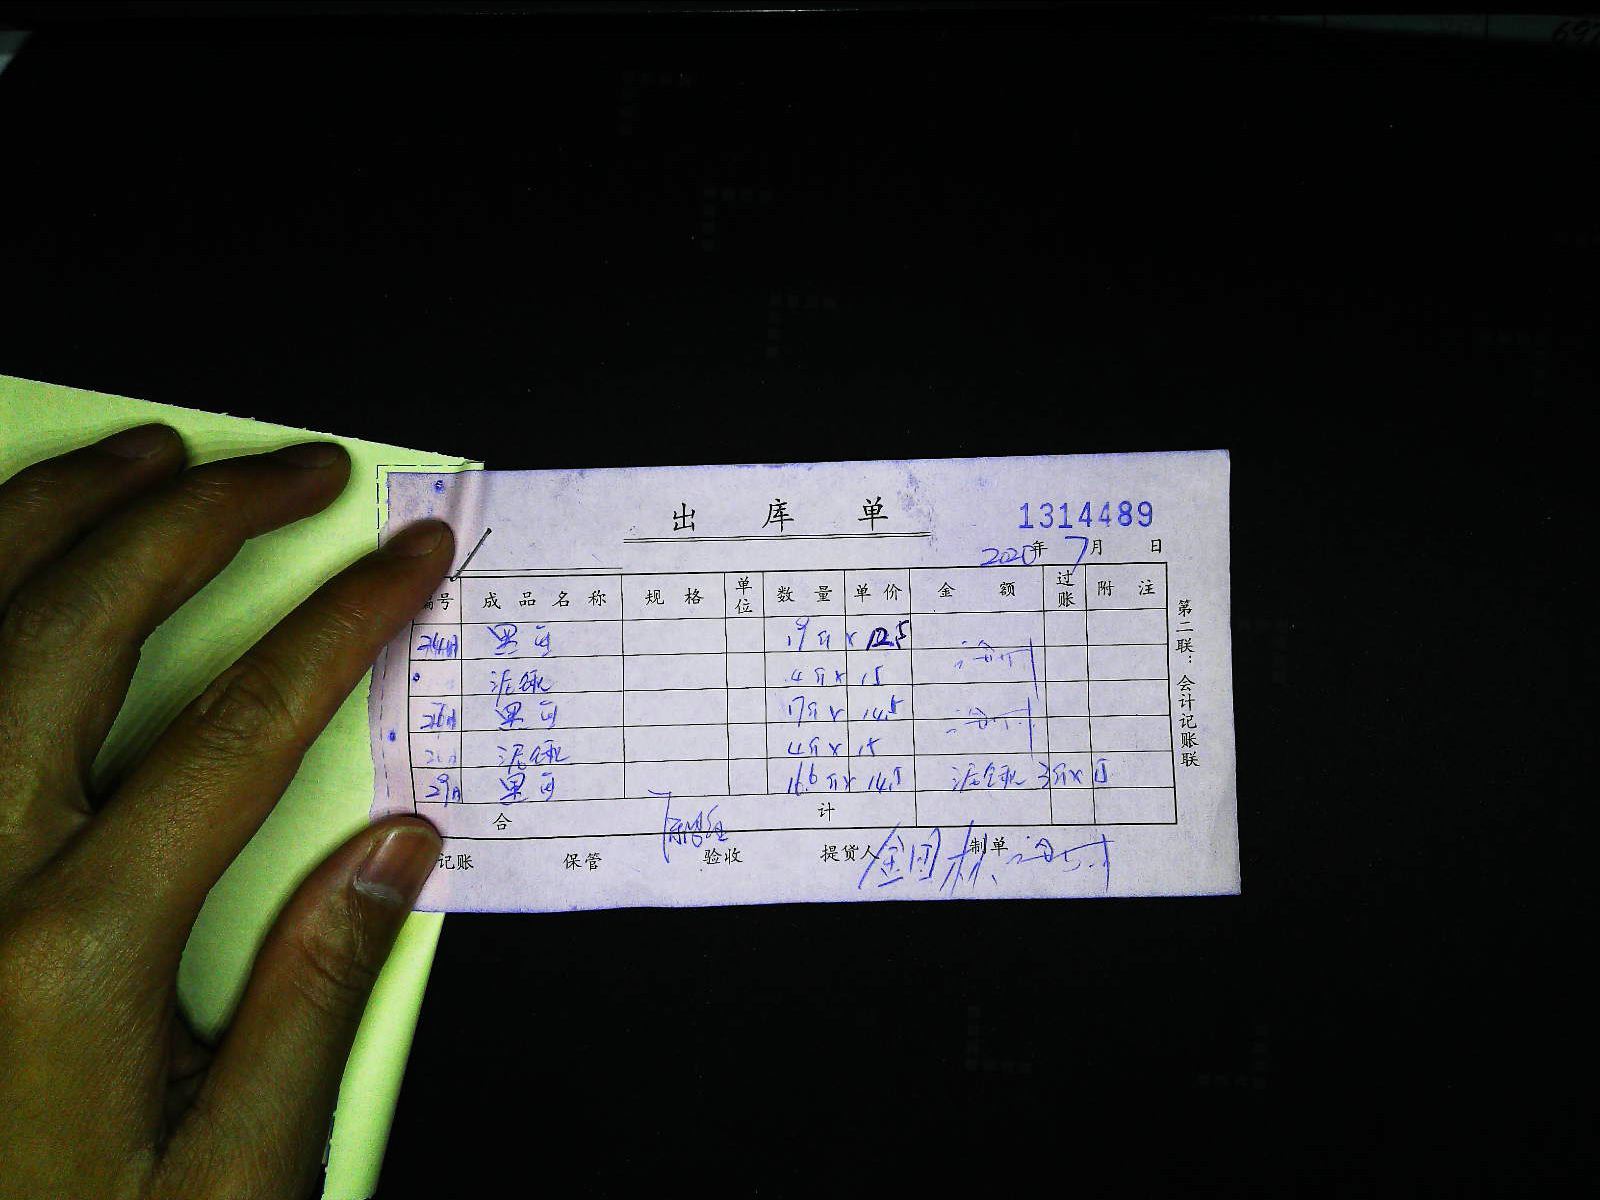 出库单
1314489
2020年 7月 日
编号 成品名称 规格 单位 数量 单价 金额 过账 附注
24日 黑鱼 19斤 × 12.5
泥鳅 4斤 × 15
26日 黑鱼 17斤 × 14.5
泥鳅 4斤 × 15
29日 黑鱼 16.6斤 × 14.5 泥鳅 3斤 × 15
合 计
记账 保管 验收 提货人 金国林 制单
第二联：会计记账联